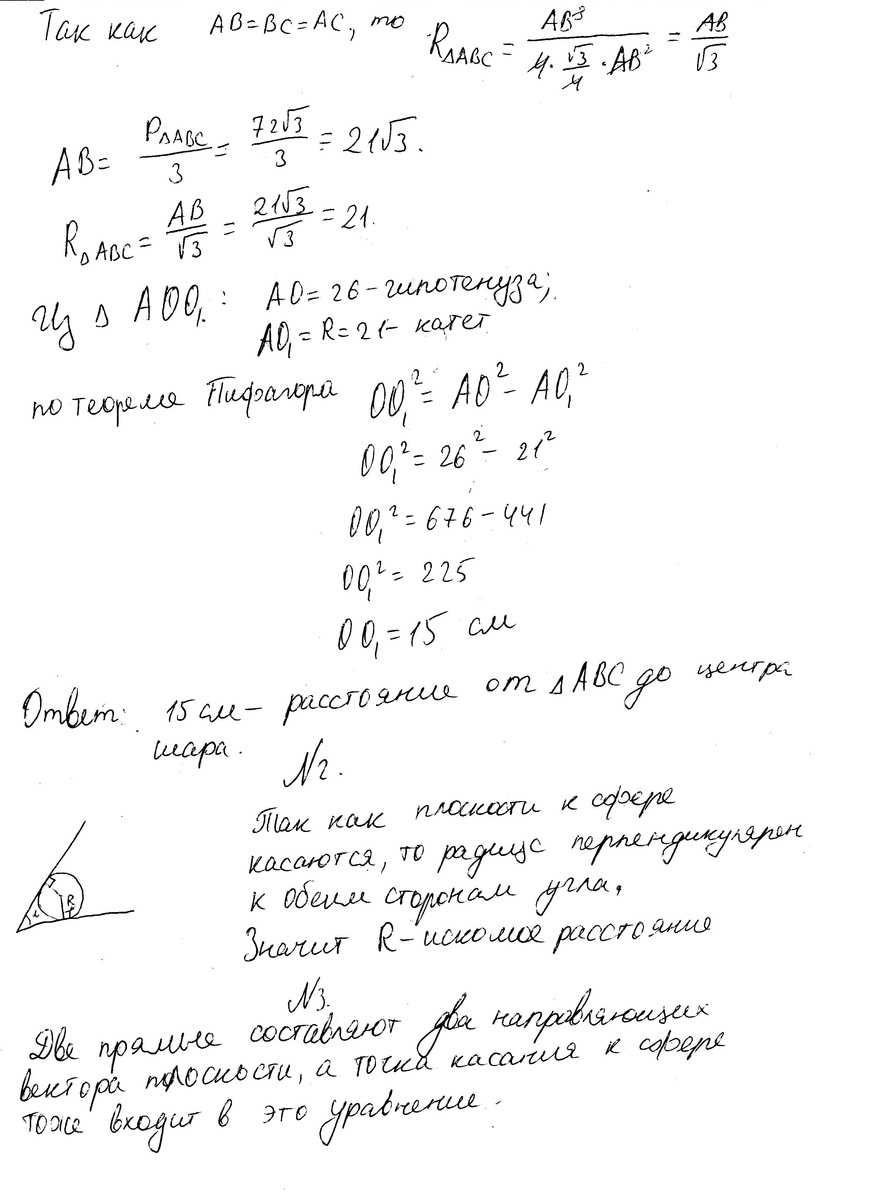 Так как AB=BC=AC, то R△ABC = AB³/(4·√3/4·AB²) = AB/√3
AB = P△ABC/3 = 72√3/3 = 21√3.
R△ABC = AB/√3 = 21√3/√3 = 21.
Из △ AOO₁: AO=26 – гипотенуза;
AO₁=R=21 – катет
по теореме Пифагора OO₁² = AO² – AO₁²
OO₁² = 26² – 21²
OO₁² = 676 – 441
OO₁² = 225
OO₁ = 15 см
Ответ: 15 см – расстояние от △ABC до центра
шара.
N2.
Так как плоскости к сфере
касаются, то радиус перпендикулярен
R
к обеим сторонам угла.
Значит R – искомое расстояние
N3.
Две прямые составляют два направляющих
вектора плоскости, а точка касания к сфере
тоже входит в это уравнение.